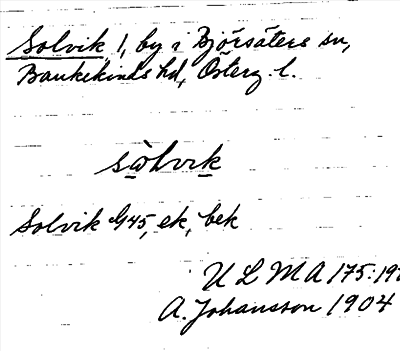 Solvik, 1, by i Björsäters sn,
Bankekinds hd, Österg. l.
sòlvik
Solvik G45, ek, bek
U L M A 175:197
A. Johansson 1904